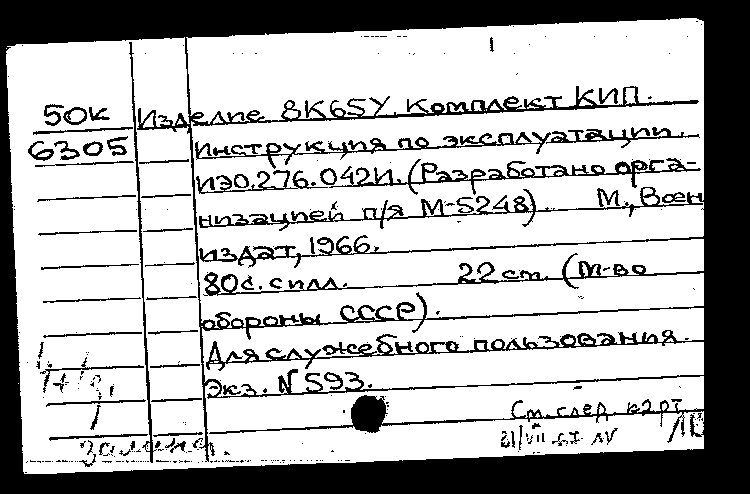 50к Изделие 8К65У. Комплект КИП.
6305 Инструкция по эксплуатации.
ИЭ0.276.042И. (Разработано орга-
низацией п/я М-5248). М., Воен
издат, 1966.
80с. с илл. 22 cm. (М-во
обороны СССР).
Для служебного пользования.
Экз. N 593.
См. след. карт
замена.